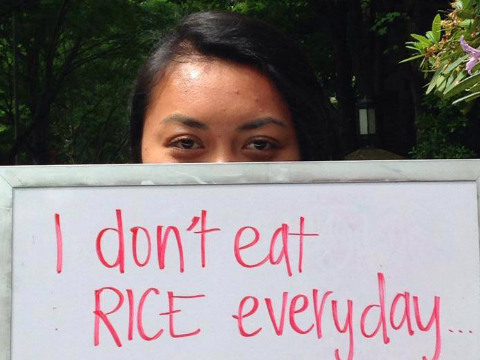 I don't eat
RICE everyday...